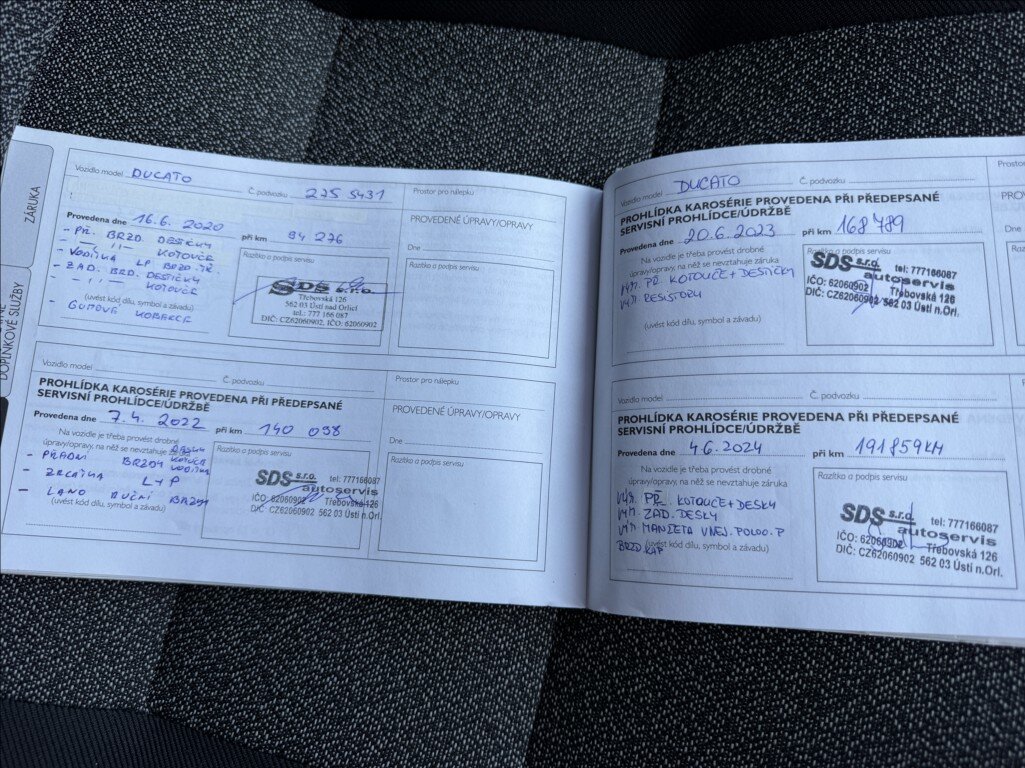 ZÁRUKA
DOPLŇKOVÉ SLUŽBY
Vozidlo model DUCATO Č. podvozku 275 5431
Prostor pro nálepku
Provedena dne 16.6. 2020 při km 94 276
- PŘ. BRZD. DESTIČKY
- —„— KOTOUČE
- VODÍTKA LP BRZD. TŘ
- ZAD. BRD. DESTIČKY
- —„— KOTOUČE
(uvést kód dílu, symbol a závadu)
- GUMOVÉ KOBERCE
Razítko a podpis servisu
SDS s.r.o.
Třebovská 126
562 03 Ústí nad Orlicí
tel.: 777 166 087
DIČ: CZ62060902, IČO: 62060902
PROVEDENÉ ÚPRAVY/OPRAVY
Dne
Razítko a podpis servisu
Vozidlo model Č. podvozku
Prostor pro nálepku
PROHLÍDKA KAROSÉRIE PROVEDENA PŘI PŘEDEPSANÉ
SERVISNÍ PROHLÍDCE/ÚDRŽBĚ
Provedena dne 7.4. 2022 při km 140 038
Na vozidle je třeba provést drobné
úpravy/opravy, na něž se nevztahuje záruka
- PŘEDNÍ BRZDY DESKY KOTOUČE VODÍTKA
- ZRCÁTKA L+P
- LANO RUČNÍ BRZDY
(uvést kód dílu, symbol a závadu)
Razítko a podpis servisu
SDS s.r.o. tel: 777166087
autoservis
IČO: 62060902 Třebovská 126
DIČ: CZ62060902 562 03 Ústí n.Orl.
PROVEDENÉ ÚPRAVY/OPRAVY
Dne
Razítko a podpis servisu
Vozidlo model DUCATO Č. podvozku
PROHLÍDKA KAROSÉRIE PROVEDENA PŘI PŘEDEPSANÉ
SERVISNÍ PROHLÍDCE/ÚDRŽBĚ
Provedena dne 20.6.2023 při km 168 789
Na vozidle je třeba provést drobné
úpravy/opravy, na něž se nevztahuje záruka
VÝM. PŘ. KOTOUČE + DESTIČKY
VÝM. RESISTORU
(uvést kód dílu, symbol a závadu)
Razítko a podpis servisu
SDS s.r.o. tel: 777166087
autoservis
IČO: 62060902 Třebovská 126
DIČ: CZ62060902 562 03 Ústí n.Orl.
Vozidlo model Č. podvozku
PROHLÍDKA KAROSÉRIE PROVEDENA PŘI PŘEDEPSANÉ
SERVISNÍ PROHLÍDCE/ÚDRŽBĚ
Provedena dne 4.6.2024 při km 191 859KM
Na vozidle je třeba provést drobné
úpravy/opravy, na něž se nevztahuje záruka
VÝM. PŘ. KOTOUČE + DESKY
VÝM. ZAD. DESKY
VÝM MANŽETA VNEJ. POLOO. P
BRZD KAP
(uvést kód dílu, symbol a závadu)
Razítko a podpis servisu
SDS s.r.o. tel: 777166087
autoservis
IČO: 62060902 Třebovská 126
DIČ: CZ62060902 562 03 Ústí n.Orl.